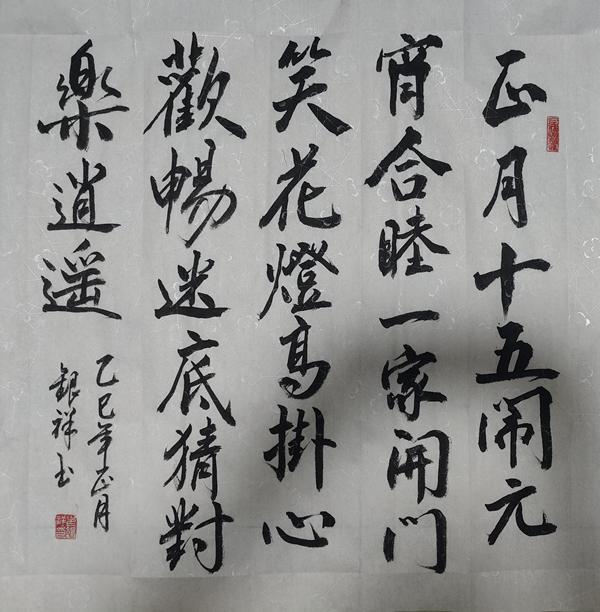 正月十五闹元
宵合睦一家開門
笑花燈高掛心
歡暢迷底猜對
樂逍遥
乙巳年正月
銀祥书